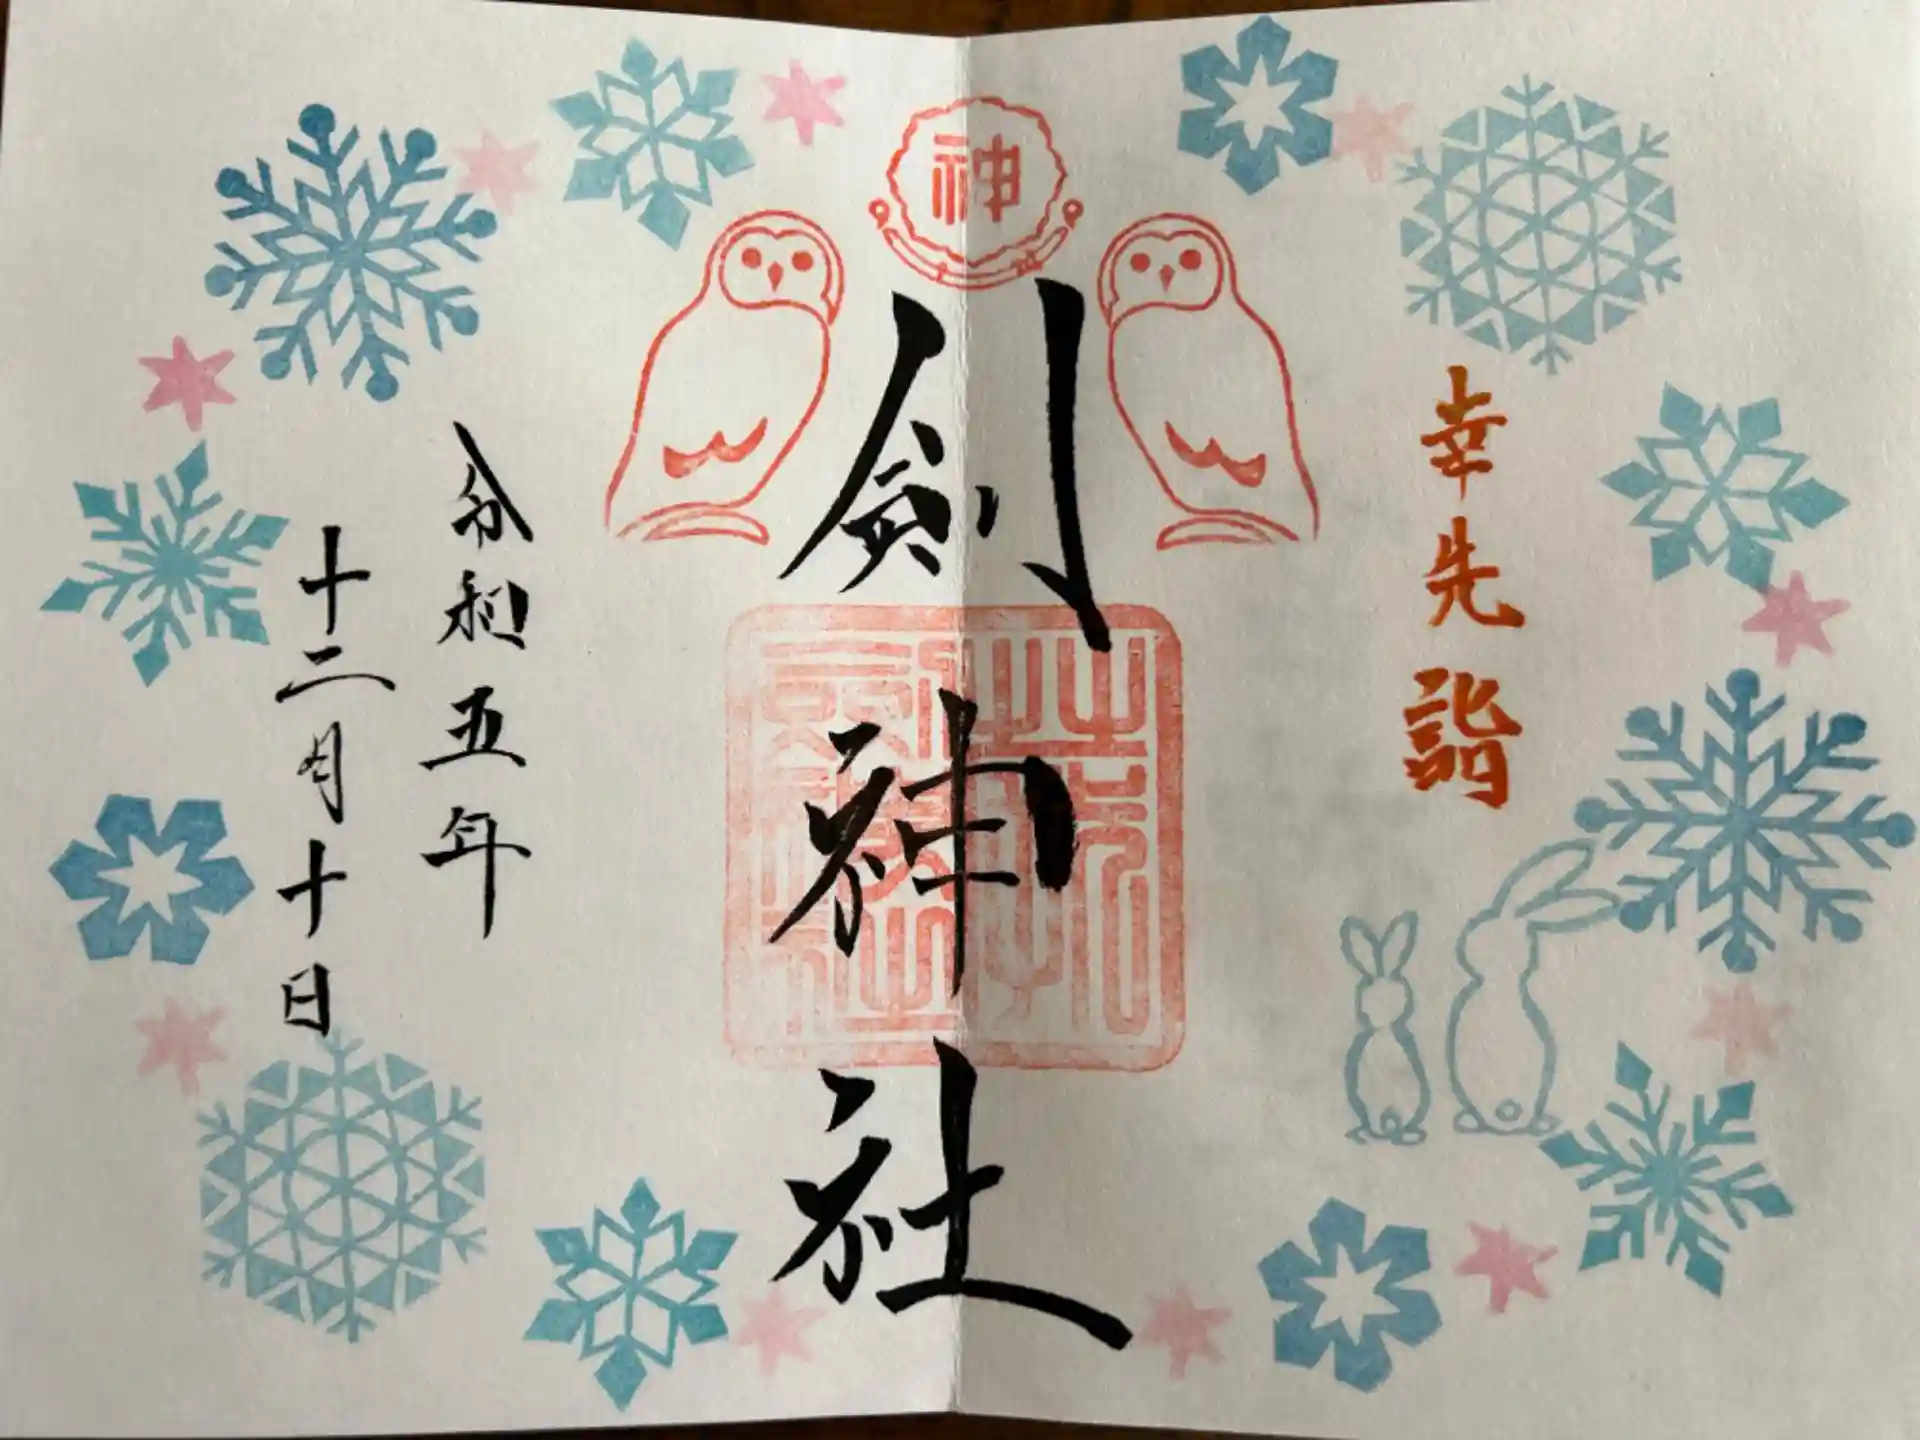 神
幸先詣
劍神社
令和五年
十二月十日